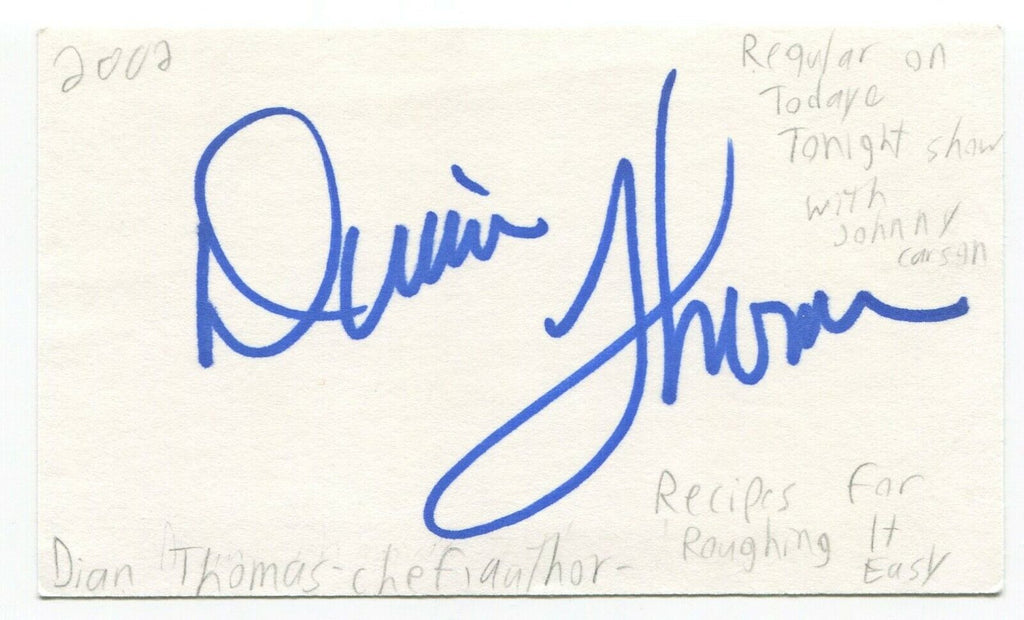 2002
Regular on
Todaye
Tonight show
with
Johnny
carson
Dian Thomas
Recipes For
Roughing It
Easy
Dian Thomas-chef,author-